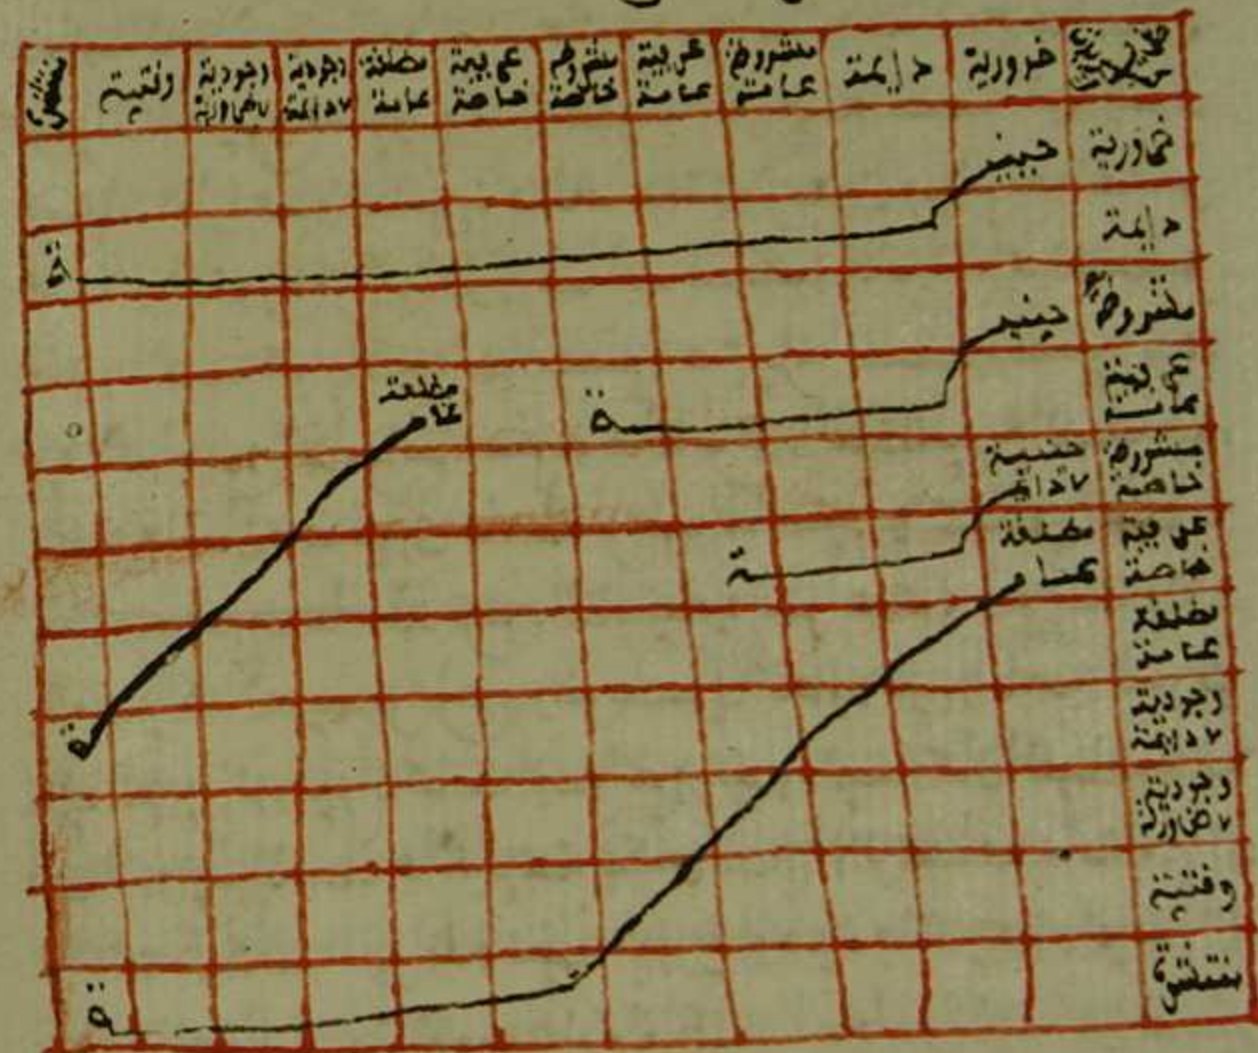 ضرورية
دايمة
مشروطة عامة
عرفية عامة
مشروطة خاصة
عرفية خاصة
مطلقة عامة
وجودية لادائمة
وجودية لاضرورية
وقتية
ضرورية
حينية
دايمة
ة
مشروطة
حينية
عرفية عامة
ة
مطلقة عا
مشروطة خاصة
حينية لادائمة
عرفية خاصة
مطلقة عامة
ة
مطلقة عامة
وجودية لادايمة
ة
وجودية لاضرورية
وقتية
منتشرة
ة